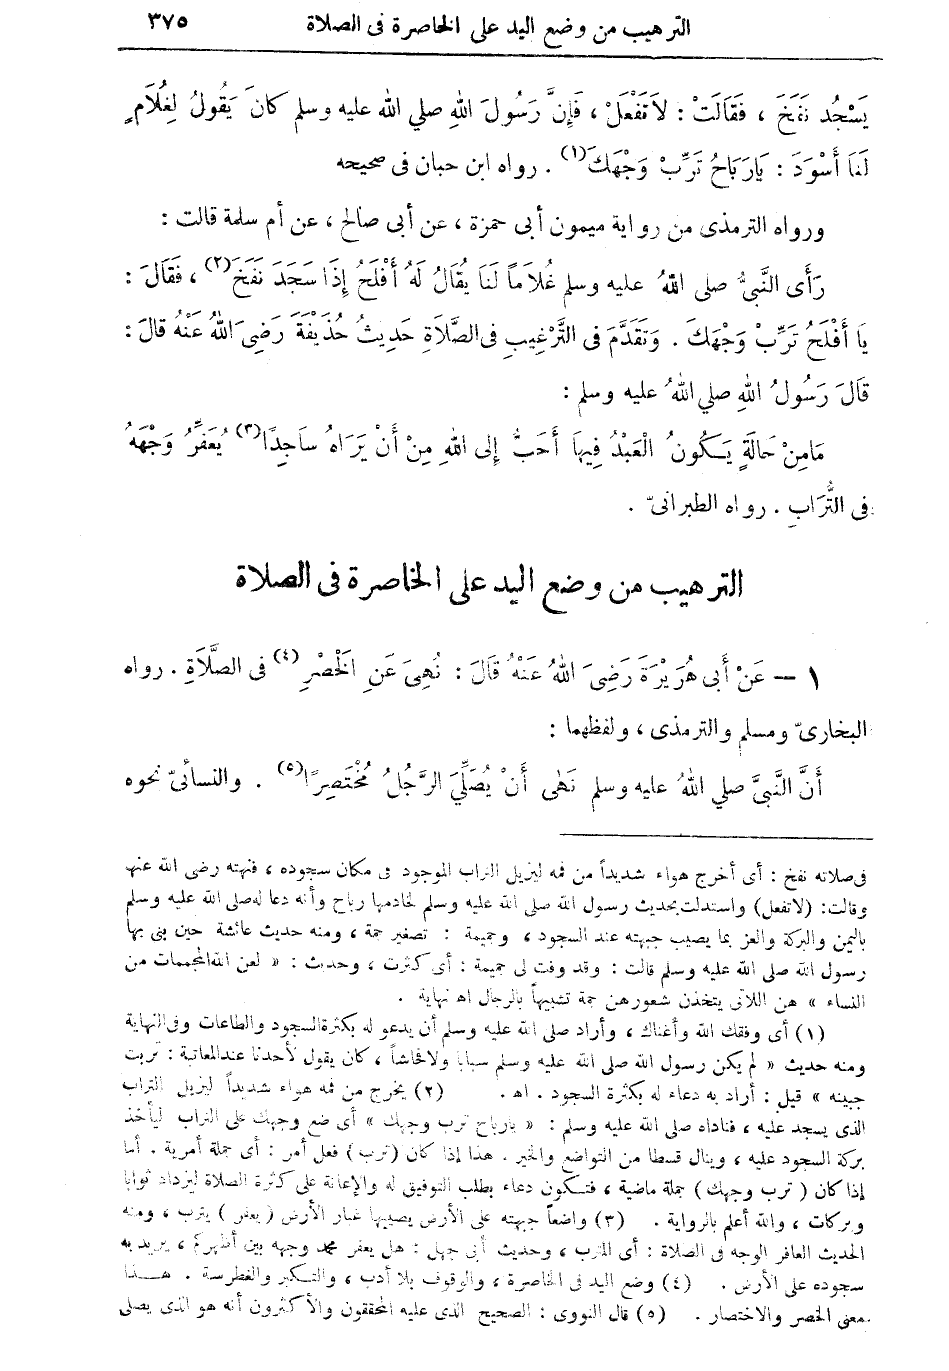 الترهيب من وضع اليد على الخاصرة فى الصلاة ٣٧٥
يَسْجُد نَفَخَ ، فَقَالَتْ : لاَ تَفْعَلْ ، فَإِنَّ رَسُولَ اللهِ صلى الله عليه وسلم كانَ يَقُولُ لِغُلاَمٍ
لَنَا أَسْوَدَ : يَارَبَاحُ تَرِّبْ وَجْهَكَ (١) . رواه ابن حبان فى صحيحه
ورواه الترمذى من رواية ميمون أبى حمزة ، عن أبى صالح ، عن أم سلمة قالت :
رَأَى النَّبىُّ صلى اللهُ عليه وسلم غُلاَماً لَنَا يُقَالُ لَهُ أَفْلَحُ إِذَا سَجَدَ نَفَخَ (٢) ، فَقَالَ :
يَا أَفْلَحُ تَرِّبْ وَجْهَكَ . وَتَقَدَّمَ فى التَّرْغِيبِ فى الصَّلاَةِ حَدِيثُ حُذَيْفَةَ رَضِىَ اللهُ عَنْهُ قالَ :
قَالَ رَسُولُ اللهِ صلى اللهُ عليه وسلم :
مَامِنْ حَالَةٍ يَكُونُ الْعَبْدُ فِيهَا أَحَبَّ إِلى اللهِ مِنْ أَنْ يَرَاهُ سَاجِدًا (٣) يُعَفِّرُ وَجْهَهُ
فى التُّرَابِ . رواه الطبرانىّ .
الترهيب من وضع اليد على الخاصرة فى الصلاة
١ — عَنْ أَبى هُرَيْرَةَ رَضِىَ اللهُ عَنْهُ قَالَ : نُهِىَ عَنِ الْخَصْرِ (٤) فى الصَّلاَةِ . رواه
البخارىّ ومسلم والترمذى ، ولفظهما :
أَنَّ النَّبىَّ صلى اللهُ عليه وسلم نَهَى أَنْ يُصَلِّىَ الرَّجُلُ مُخْتَصِرًا (٥) . والنسائىّ نحوه
فى صلاته نفخ : أى أخرج هواء شديداً من فمه ليزيل التراب الموجود فى مكان سجوده ، فنهته رضى الله عنها
وقالت : (لا تفعل) واستدلت بحديث رسول الله صلى الله عليه وسلم لخادمها رباح وأنه دعا له صلى الله عليه وسلم
باليمن والبركة والعز بما يصيب جبهته عند السجود ، وجميمة : تصغير جمة ، ومنه حديث عائشة حين بنى بها
رسول الله صلى الله عليه وسلم قالت : وقد وفت لى جميمة : أى كثرت ، وحديث : « لعن الله المجممات من
النساء » هن اللاتى يتخذن شعورهن جمة تشبيهاً بالرجال اهـ نهاية .
(١) أى وفقك الله وأغناك ، وأراد صلى الله عليه وسلم أن يدعو له بكثرة السجود والطاعات وفى النهاية
ومنه حديث « لم يكن رسول الله صلى الله عليه وسلم سبابا ولا فحاشاً ، كان يقول لأحدنا عند المعاتبة : تربت
جبينه » قيل : أراد به دعاء له بكثرة السجود . اهـ . (٢) يخرج من فمه هواء شديداً ليزيل التراب
الذى يسجد عليه ، فناداه صلى الله عليه وسلم : « يارباح ترب وجهك » أى ضع وجهك على التراب ليأخذ
بركة السجود عليه ، وينال قسطا من التواضع والخير . هذا إذا كان (ترب) فعل أمر : أى جملة أمرية . أما
إذا كان (ترب وجهك) جملة ماضية ، فتكون دعاء بطلب التوفيق له والإعانة على كثرة الصلاة ليزداد ثوابا
وبركات ، والله أعلم بالرواية . (٣) واضعاً جبهته على الأرض يصيبها غبار الأرض (يعفر) يترب ، ومنه
الحديث العافر الوجه فى الصلاة : أى المترب ، وحديث أبى جهل : هل يعفر محمد وجهه بين أظهركم ، يريد به
سجوده على الأرض . (٤) وضع اليد فى الخاصرة ، والوقوف بلا أدب ، والتكبر والغطرسة . هذا
معنى الخصر والاختصار . (٥) قال النووى : الصحيح الذى عليه المحققون والأكثرون أنه هو الذى يصلى